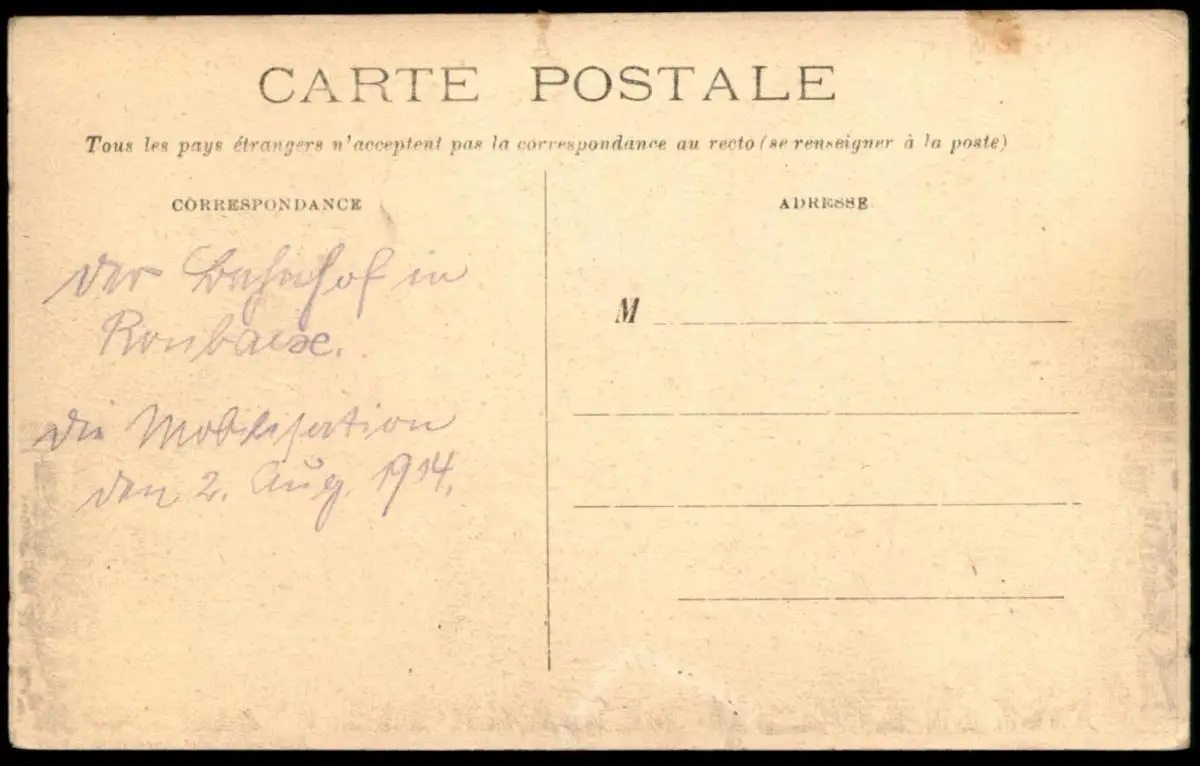 CARTE POSTALE
Tous les pays étrangers n'acceptent pas la correspondance au recto (se renseigner à la poste)
CORRESPONDANCE
Der Bahnhof in
Roubaix.
Die Mobilisation
den 2. Aug. 1914.
ADRESSE
M